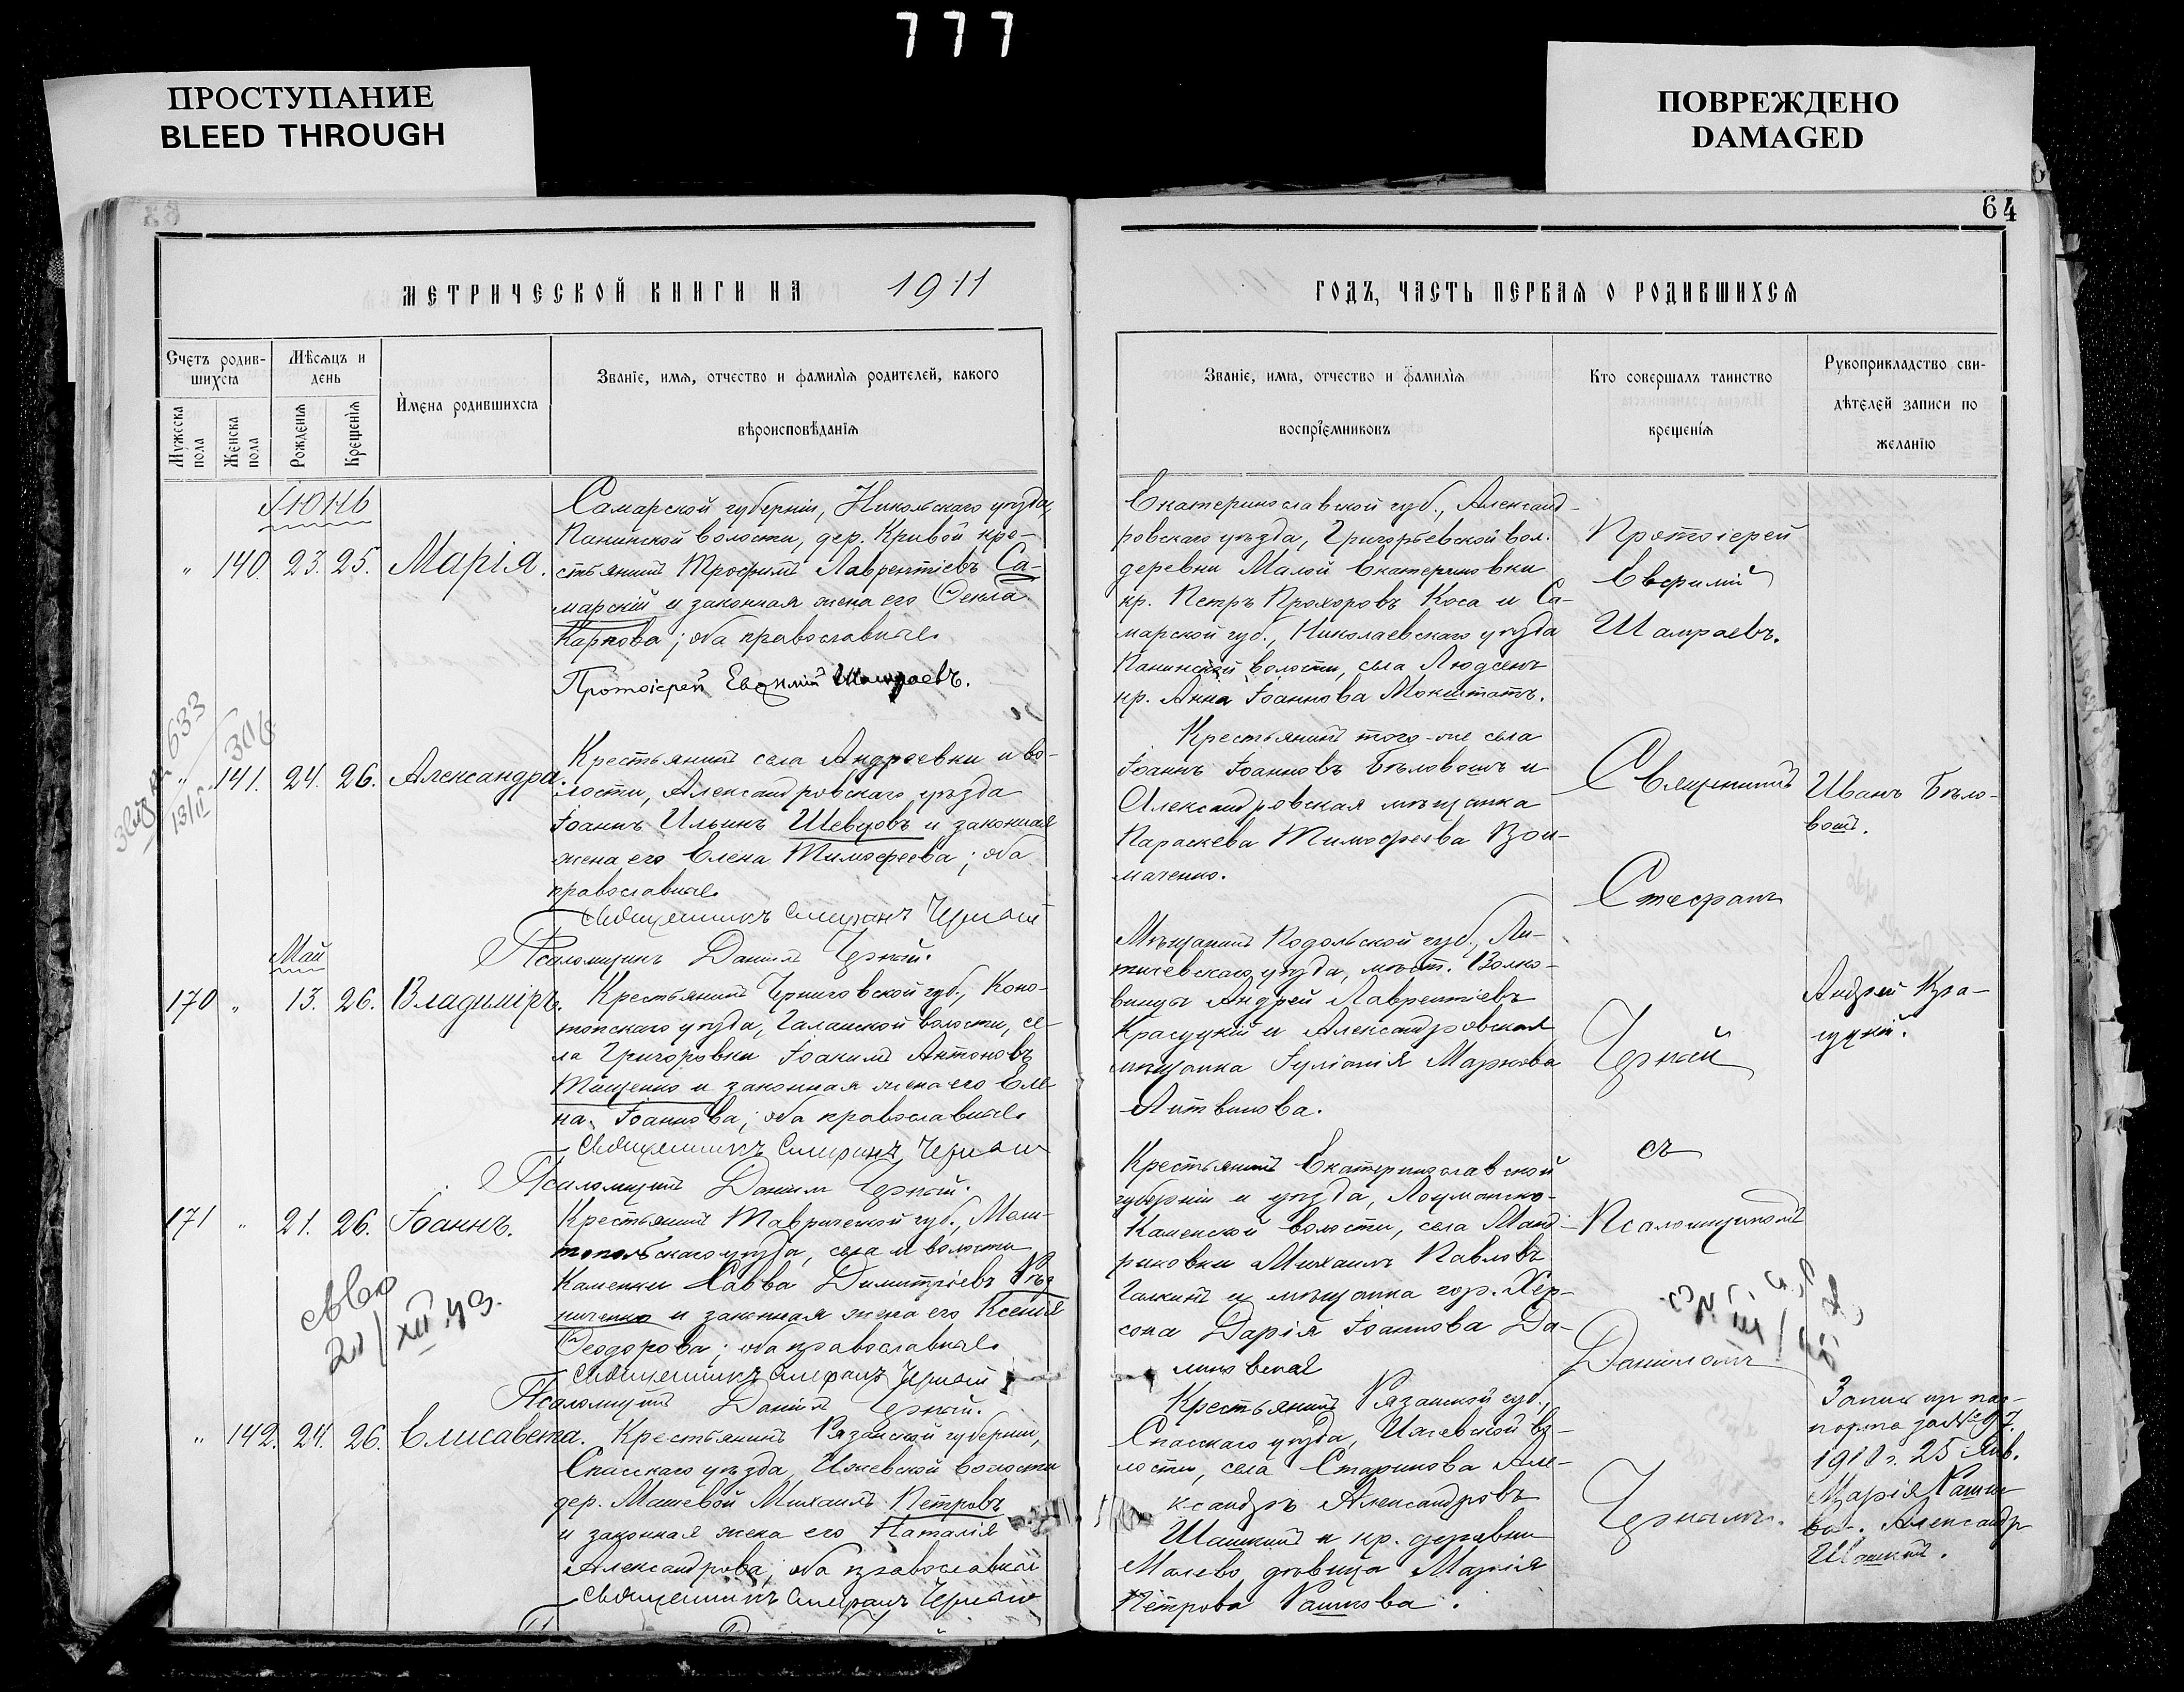 777
ПРОСТУПАНИЕ
BLEED THROUGH
ПОВРЕЖДЕНО
DAMAGED
64
МЕТРИЧЕСКОЙ КНИГИ НА 1911
ГОДЪ, ЧАСТЬ ПЕРВАЯ О РОДИВШИХСЯ
Счетъ родив-
шихся
Мужеска пола
Женска пола
Мѣсяцъ и
день
Рожденія
Крещенія
Имена родившихся
Званіе, имя, отчество и фамилія родителей, какого
вѣроисповѣданія
Званіе, имя, отчество и фамилія
воспріемниковъ
Кто совершалъ таинство
крещенія
Рукоприкладство сви-
дѣтелей записи по
желанію
" 140. 23. 25. Марія.
Самарской губерніи, Никольскаго уѣзда,
Панинской волости, дер. Кривой кре-
стьянинъ Трофимъ Лаврентіевъ Са-
марскій и законная жена его Ѳекла
Карпова; оба православные
Протоіерей Евѳимій Шамраевъ.
Екатеринославской губ., Александ-
ровскаго уѣзда, Григорьевской вол.
деревни Малой Екатериновки
кр. Петръ Прохоровъ Коса и Са-
марской губ., Николаевскаго уѣзда
Панинской волости, села
кр. Анна Іоаннова
Протоіерей
Евѳимій
Шамраевъ.
633
306
13/II
" 141. 24. 26. Александра.
Крестьянинъ села Андреевки и во-
лости, Александровскаго уѣзда
Іоаннъ Ильинъ Шевцовъ и законная
жена его Елена Тимофеева; оба
православные
Священникъ Стефанъ Черный
Псаломщикъ Даніилъ Черный.
Крестьянинъ того-же села
Іоаннъ Іоанновъ Бѣловолъ и
Александровская мѣщанка
Параскева Тимофеева
маченко.
Священникъ
Стефанъ
Черный
съ
Псаломщикомъ
Даніиломъ
Чернымъ.
Иванъ Бѣло-
волъ.
Май
170 " 13. 26. Владиміръ.
Крестьянинъ Черниговской губ., Коно-
топскаго уѣзда, волости, се-
ла Григоровки Іоакимъ Антоновъ
Тищенко и законная жена его Еле-
на Іоаннова; оба православные
Священникъ Стефанъ Черный
Псаломщикъ Даніилъ Черный.
Мѣщанинъ Подольской губ., Ли-
тичевскаго уѣзда, мѣст. Волко-
винцы Андрей Лаврентіевъ
Красуцкій и Александровская
мѣщанка Іуліанія Маркова
Литвинова.
Андрей Кра-
суцкій.
171 " 21. 26. Іоаннъ.
Крестьянинъ Таврической губ., Мели-
топольскаго уѣзда, села и волости
Каменки Савва Димитріевъ
и законная жена его Ксенія
Ѳеодорова; оба православные
Священникъ Стефанъ Черный
Псаломщикъ Даніилъ Черный.
Крестьянинъ Екатеринославской
губерніи и уѣзда, Лоцманско-
Каменской волости, села Манд-
риковки Михаилъ Павловъ
Галкинъ и мѣщанка гор. Хер-
сона Дарія Іоаннова Да-
" 142. 24. 26. Елисавета.
Крестьянинъ Рязанской губерніи,
Спасскаго уѣзда, Ижевской волости
дер. Малевой Михаилъ Петровъ
и законная жена его Наталія
Александрова; оба православные
Священникъ Стефанъ Черный
Крестьянинъ Рязанской губ.,
Спасскаго уѣзда, Ижевской во-
лости, села Старикова Але-
ксандръ Александровъ
Шашкинъ и кр. деревни
Малево дѣвица Марія
Петрова
1910 г. 25 Янв.
Марія
Александръ
Шашкинъ.